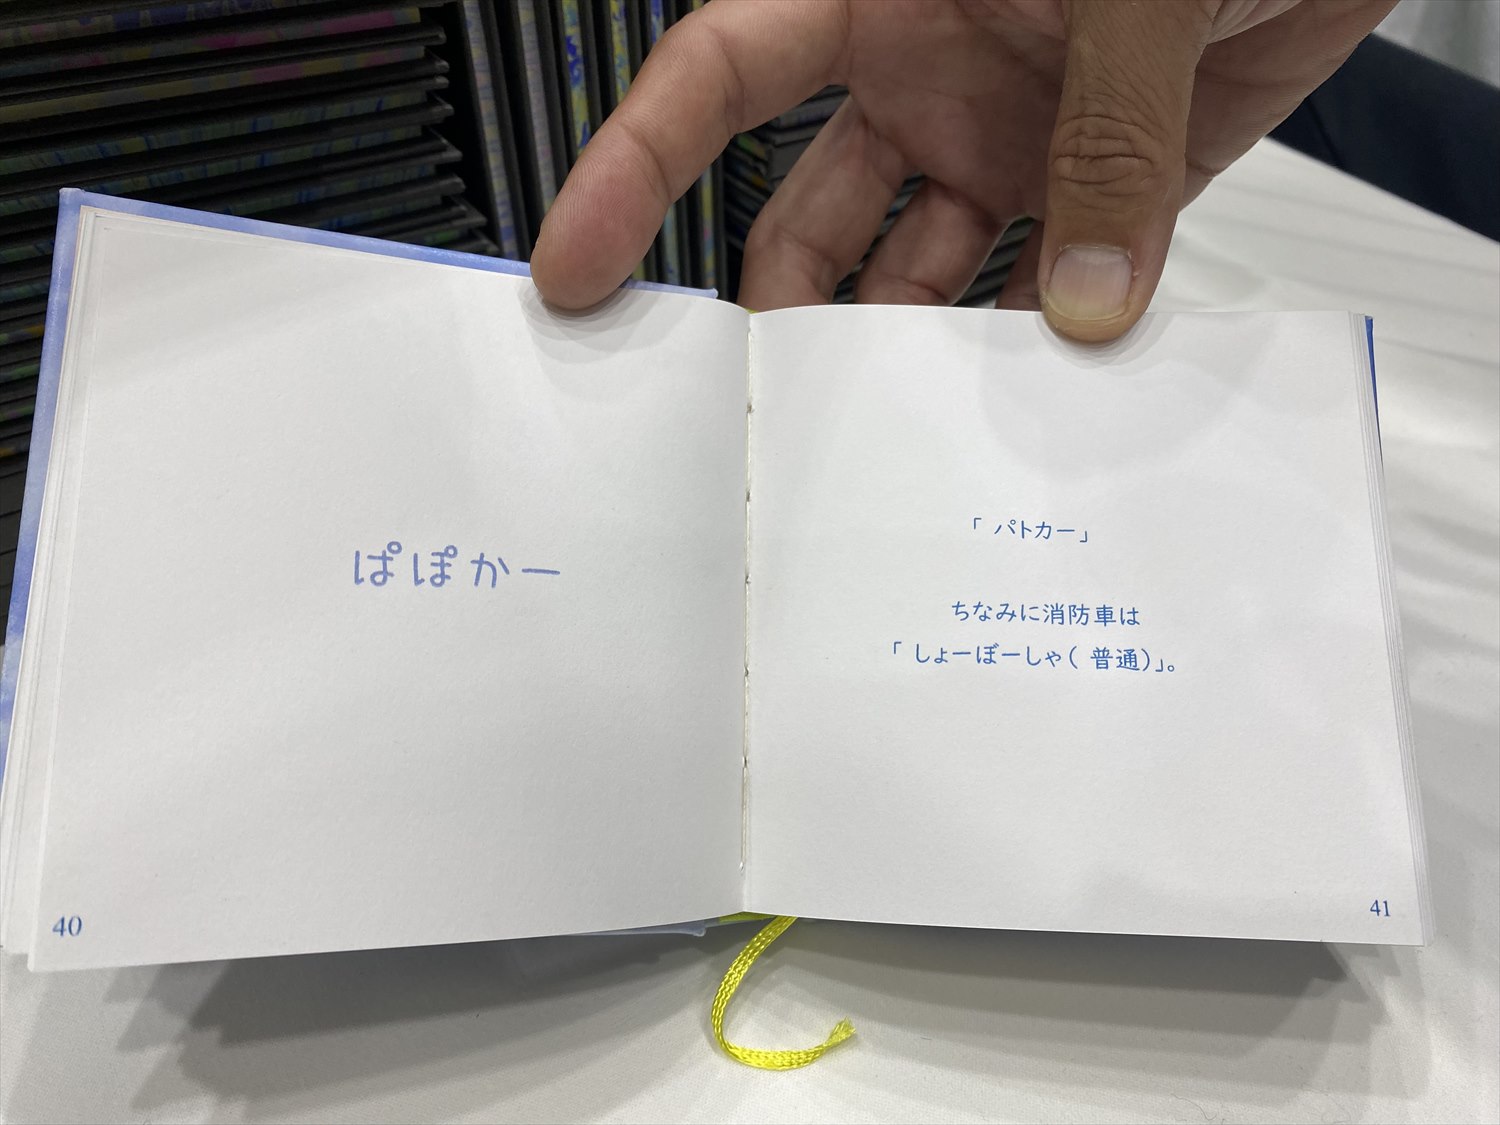 ぱぽかー
40
「パトカー」
ちなみに消防車は
「しょーぼーしゃ(普通)」。
41